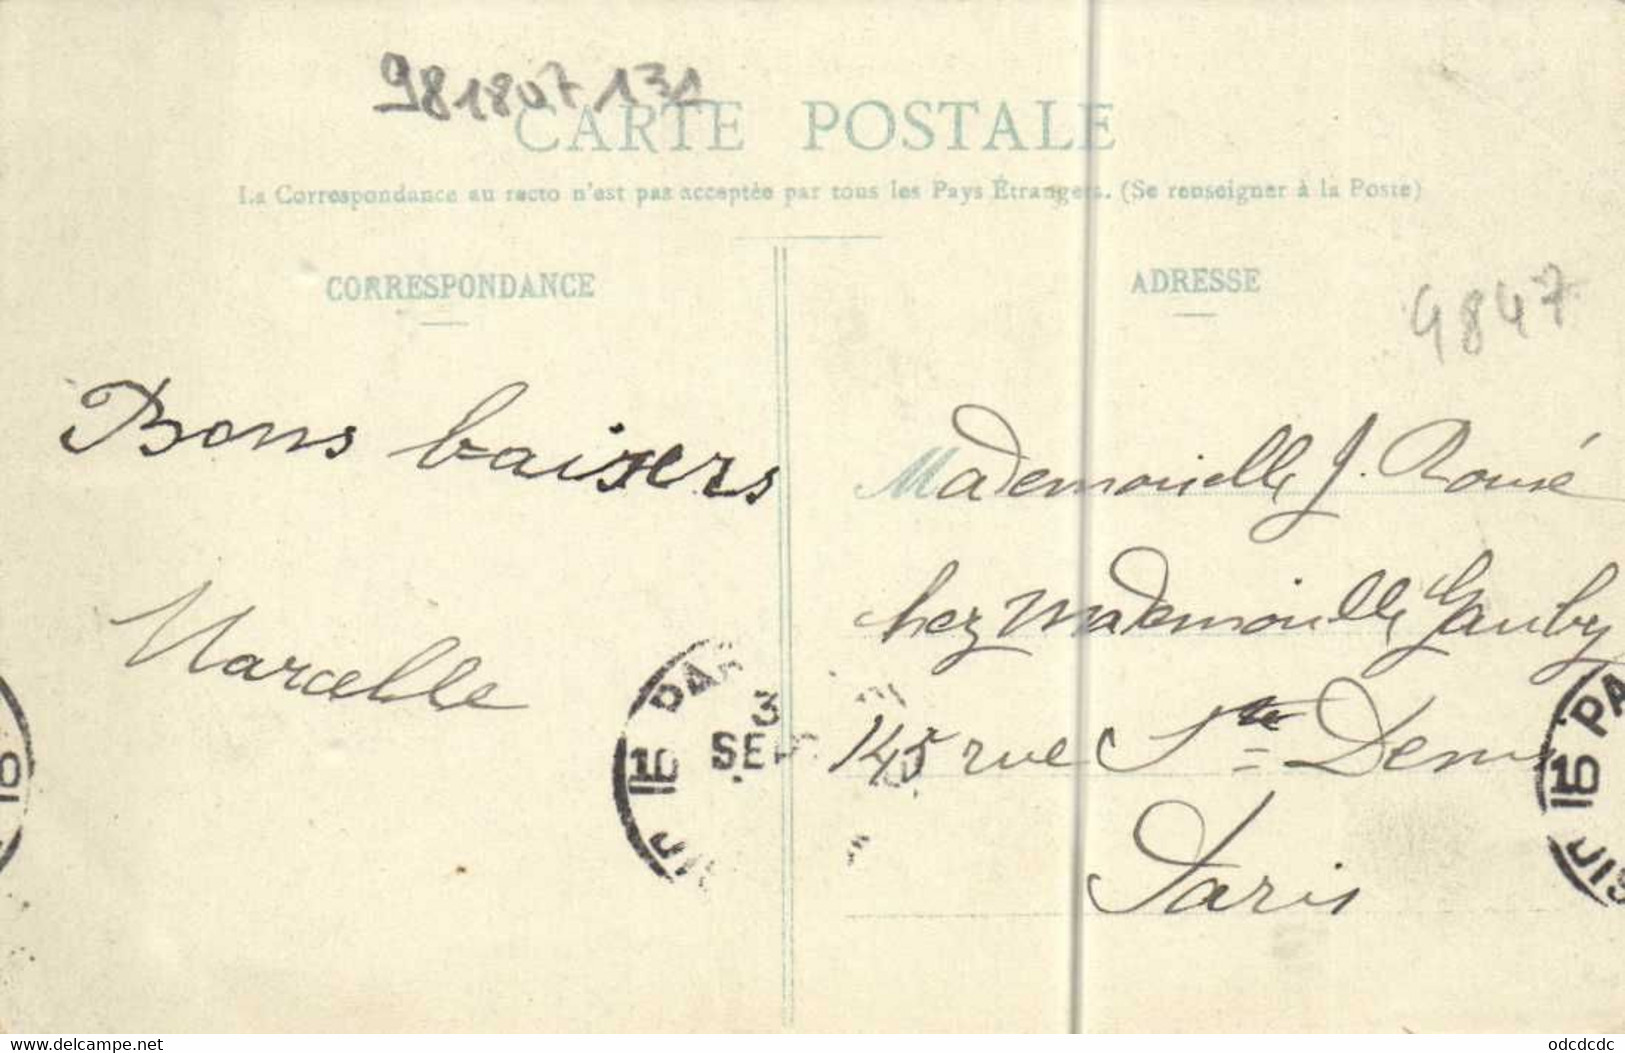 981807131
CARTE POSTALE
La Correspondance au recto n'est pas acceptée par tous les Pays Étrangers. (Se renseigner à la Poste)
CORRESPONDANCE
ADRESSE
9847
Bons baisers
Marcelle
Mademoiselle J.
chez Mademoiselle Gauby
145 rue St Denis
Paris
3
SEPT
10
10
See the back
odcdcdc